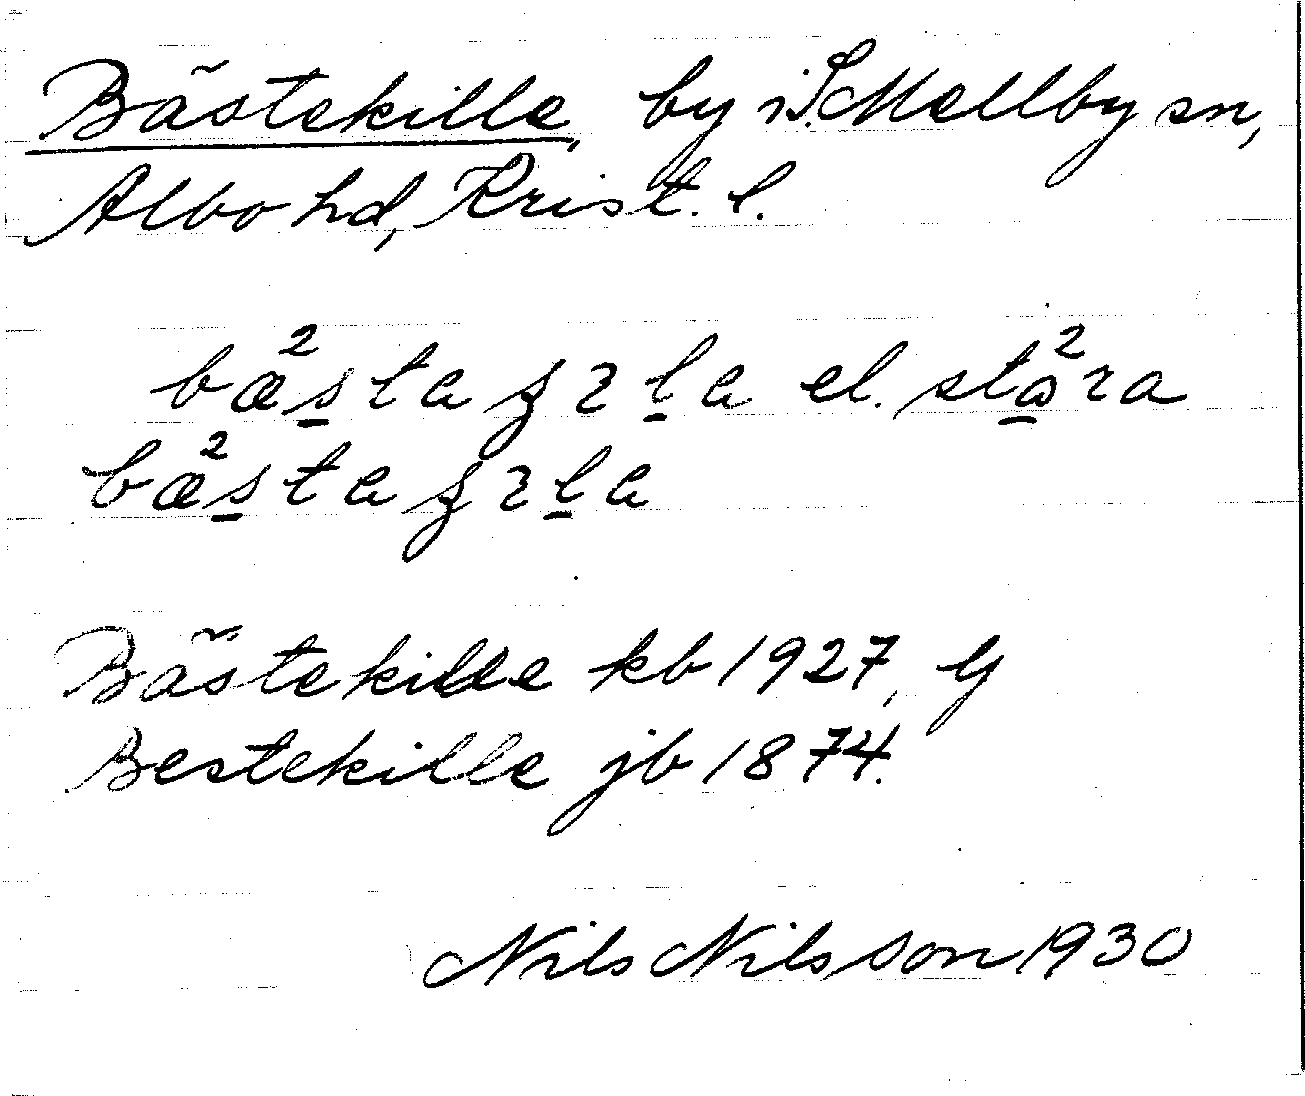 Bästekille, by i S. Mellby sn,
Albo hd, Krist. l.
bæ²s̲taʒɿl̲a el. stå̲²ra
bæ²s̲taʒɿl̲a
Bästekille kb 1927, G
Bestekille jb 1874.
Nils Nilsson 1930